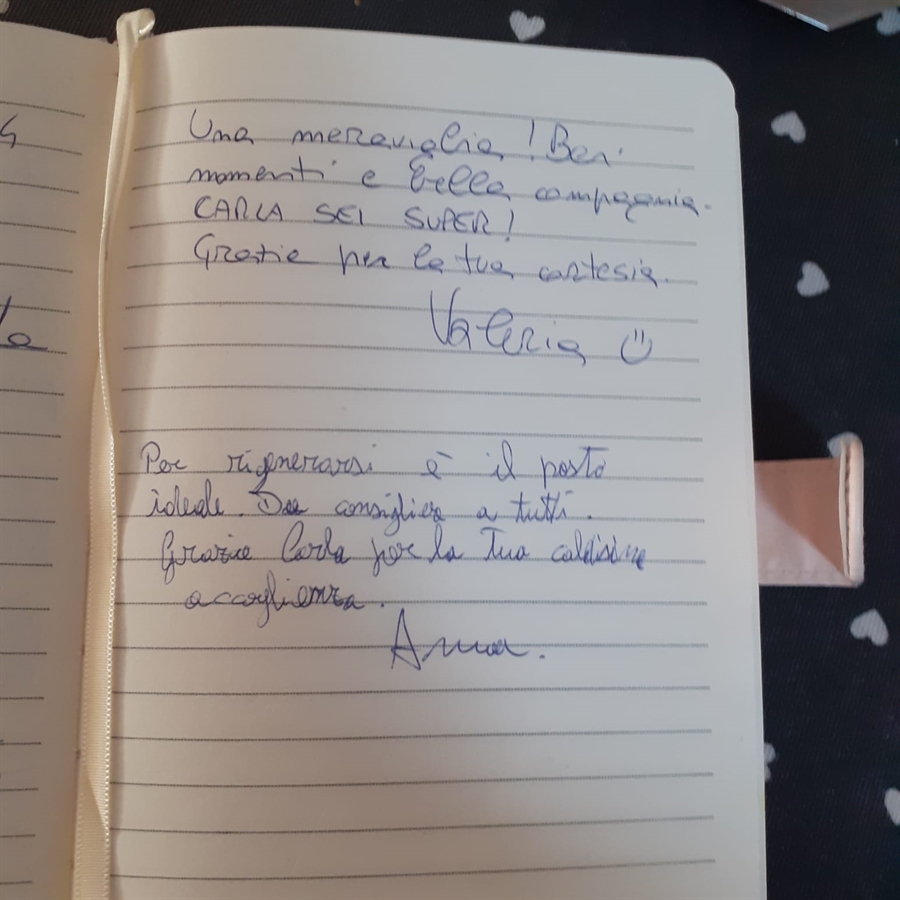 Una meraviglia! Bei
momenti e bella compagnia.
CARLA SEI SUPER!
Grazie per la tua cortesia.
Valeria ☺
Per rigenerarsi è il posto
ideale. Da consigliare a tutti.
Grazie Carla per la Tua caldissima
accoglienza.
Anna.